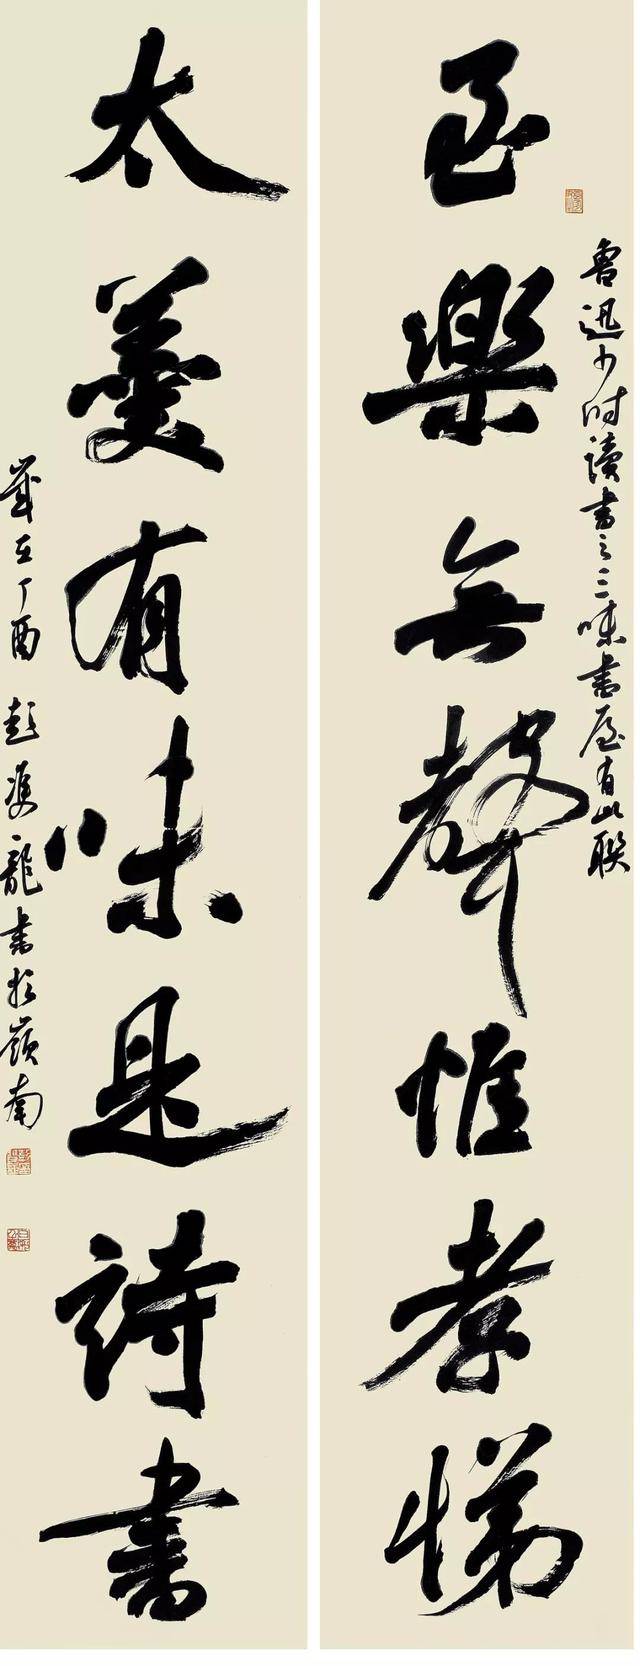 魯迅少时讀書之三味書屋有此聯
至樂無聲惟孝悌
太羹有味是詩書
歲在丁酉 彭双龍書於嶺南